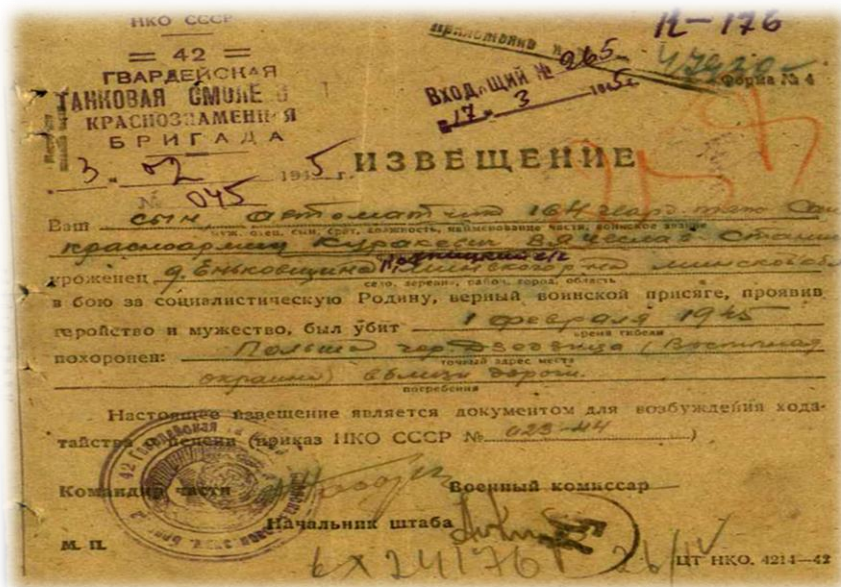 НКО СССР
= 42 =
ГВАРДЕЙСКАЯ
ТАНКОВАЯ СМОЛЕ
КРАСНОЗНАМЕННАЯ
БРИГАДА
3 02 1945 г.
№ 045
К-176
Приложение
Входящий № 265
17 3 1945 г.
Форма № 4
ИЗВЕЩЕНИЕ
Ваш сын, автоматчик 164
муж, отец, сын, брат, должность, наименование части, воинское звание
красноармеец Куракевич Вячеслав
уроженец д. Еньковщина Минского р-на Минской обл
село, деревня, район, город, область
в бою за социалистическую Родину, верный воинской присяге, проявив
геройство и мужество, был убит 1 февраля 1945
время гибели
похоронен: Польша (Восточная
точный адрес места
окраина) вблизи дороги.
погребения
Настоящее извещение является документом для возбуждения хода-
тайства о пенсии (приказ НКО СССР № 023-44)
Командир части Военный комиссар
Начальник штаба
М. П.
вх 24176 26/IV
ЦТ НКО. 4214—42